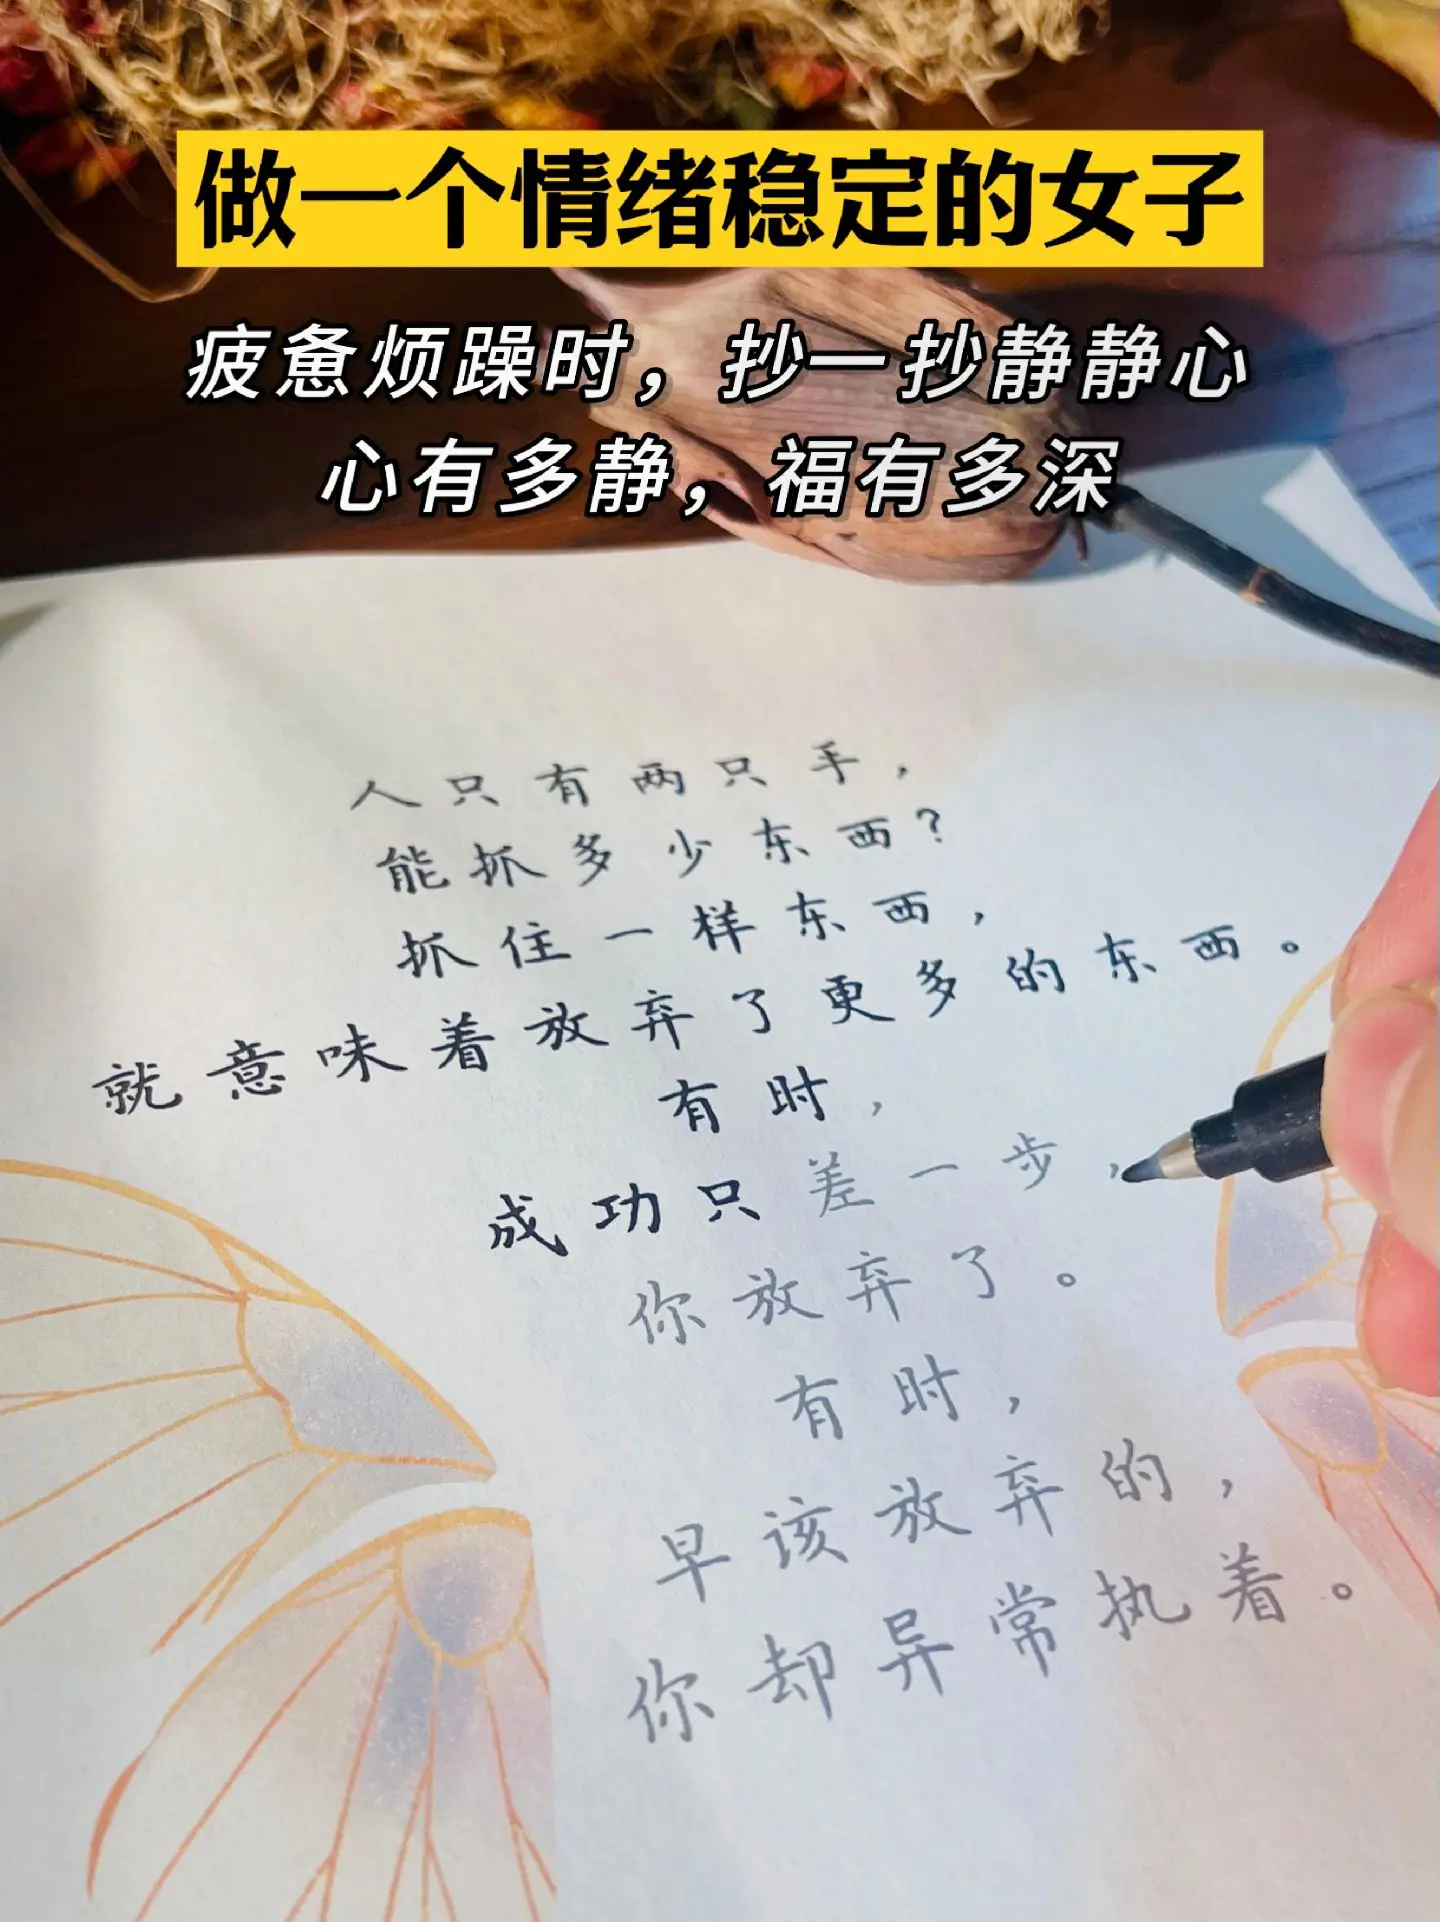 做一个情绪稳定的女子
疲惫烦躁时，抄一抄静静心
心有多静，福有多深
人只有两只手，
能抓多少东西？
抓住一样东西，
就意味着放弃了更多的东西。
有时，
成功只差一步，
你放弃了。
有时，
早该放弃的，
你却异常执着。